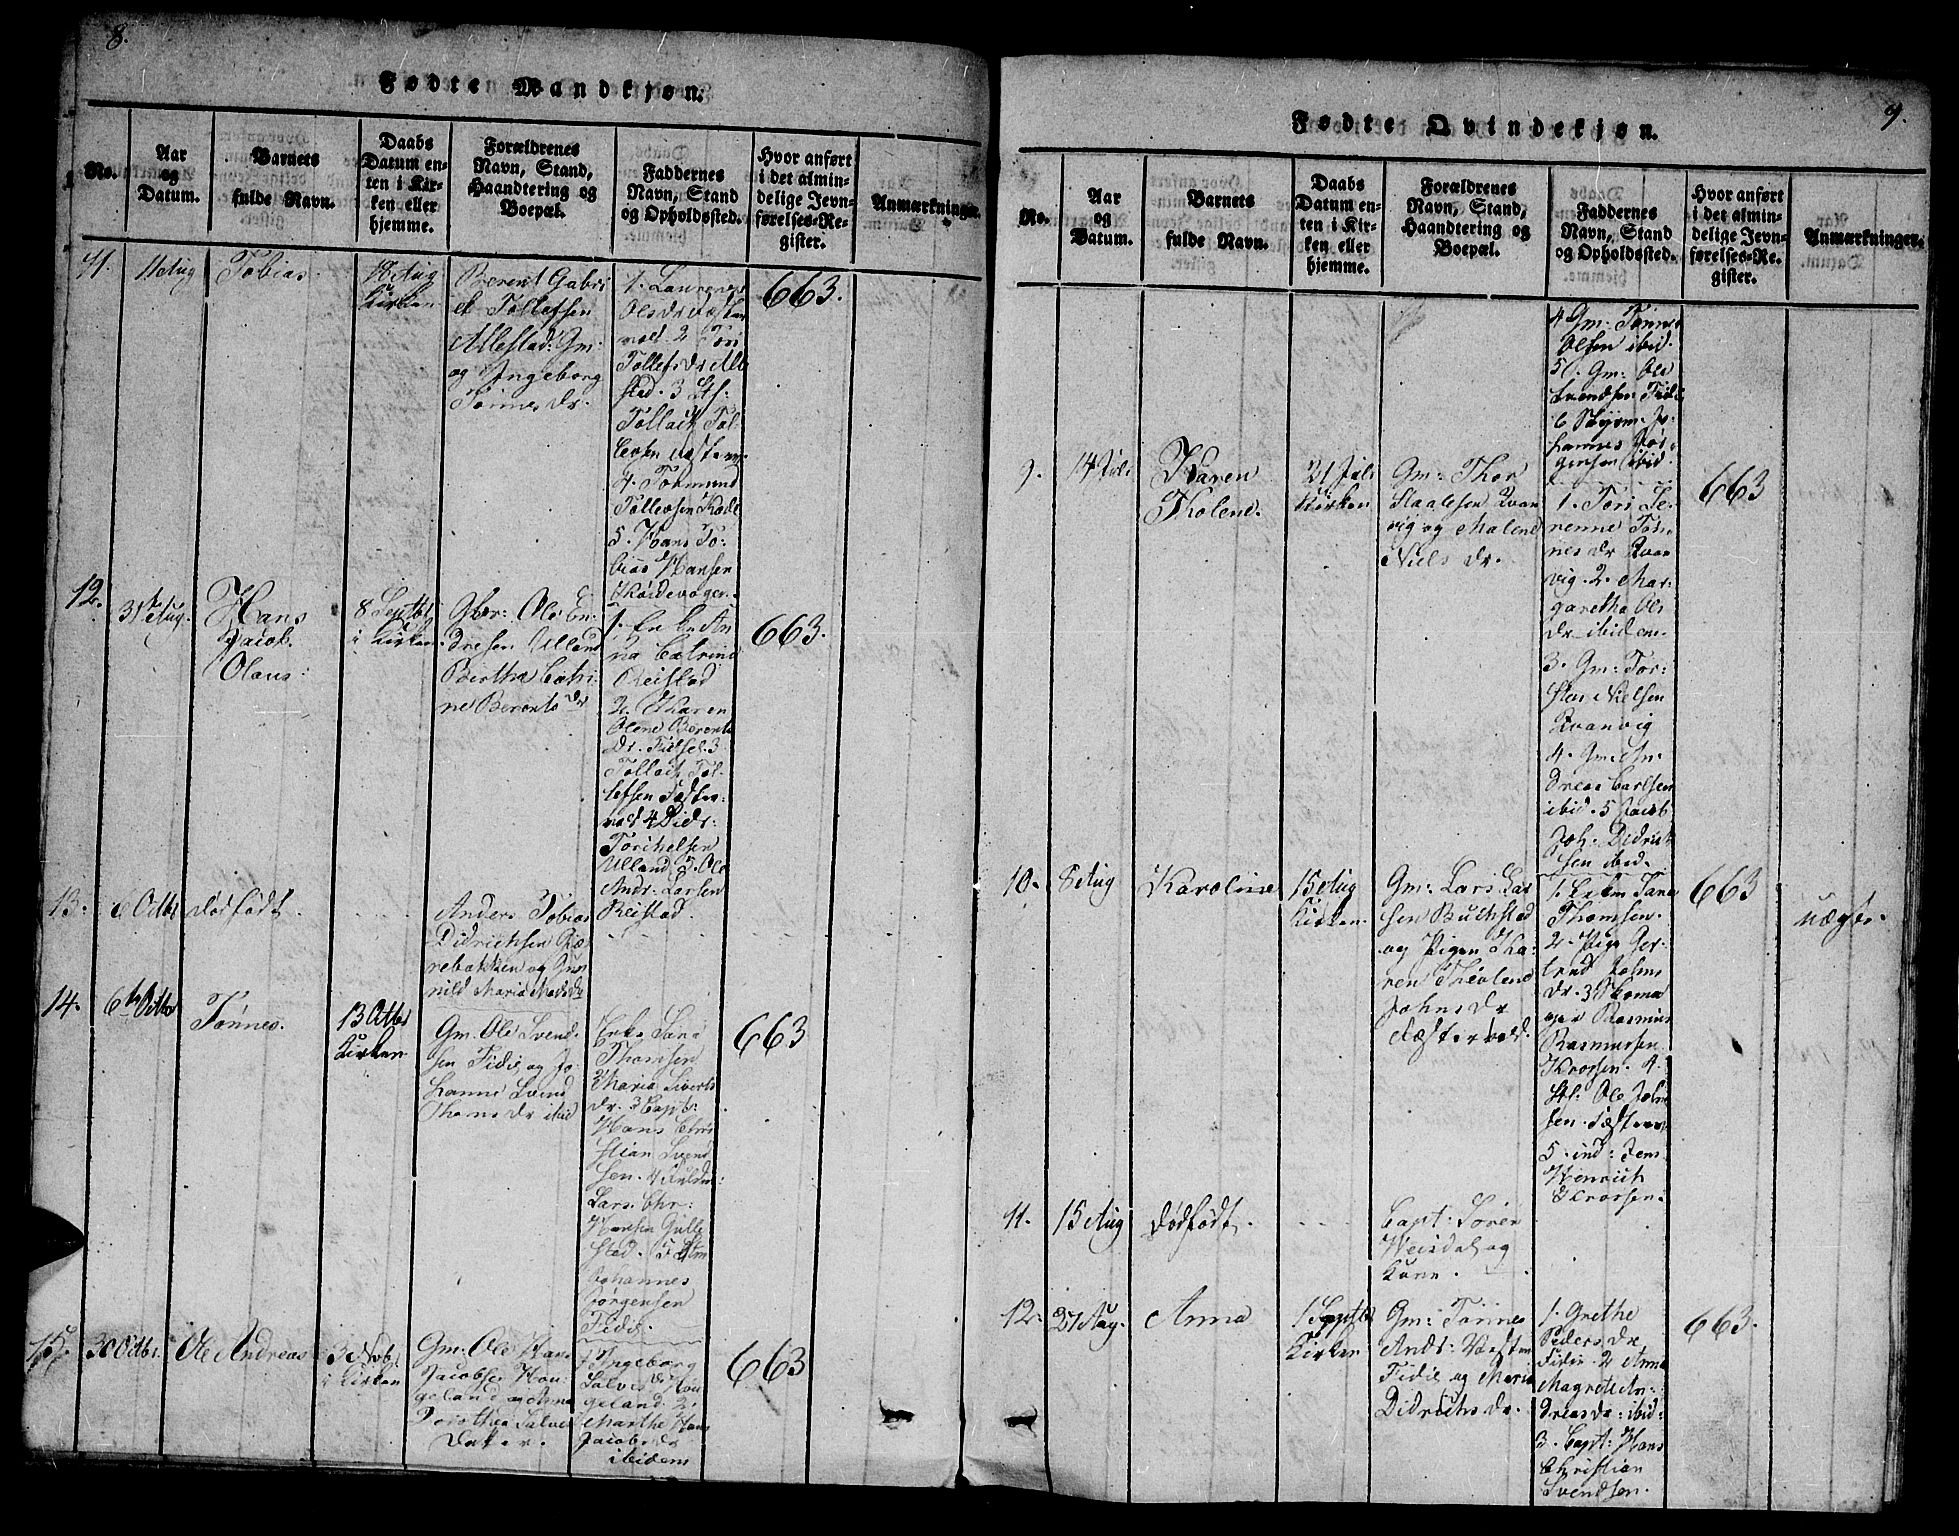 8.
Fødte Mandkjøn.
No.
Aar
og
Datum.
Barnets
fulde Navn.
Daabs
Datum en-
ten i Kir-
ken eller
hjemme.
Forældrenes
Navn, Stand,
Haandtering og
Boepæl.
Faddernes
Navn, Stand
og Opholdssted.
Hvor anført
i det almin-
delige Jevn-
førelses-Re-
gister.
Anmærkninger.
11 Aug
Tobias.
18 Aug
Kirken
Berent Gabri
el Tollefsen
Allestad: Gm:
og Ingeborg
Tønnes Dr.
1. Laurense
Ols dr Væster
vold. 2 Tori
Tollefs Dr Alle
stad. 3
Tollach Tol
lefsen
4. Tormund
Tollevsen
5. Hans To-
bias Hansen
663.
12.
31te Aug.
Hans
Jacob
Olaus.
8 Septbr
i Kirken.
Ole En-
dresen Ulland
Bertha Cathri
ne Berents Dr
1. Enke An
na Catrine
Reistad
2. Karen
Olene Berents
Dr. Fidsel. 3
Tollach Tol-
lefsen Væster
vold 4 Didr:
Torkelsen
Ulland 5. Ole
Andr: Larsen
Reistad.
663.
13.
6 Octbr
Dødfødt.
Anders Tobias
Didrichsen
rebakken og Gun
nild Maria Mads Dr
14.
6te Octbr
Tønnes.
13 Octbr
Kirken
Gm. Ole Svend-
sen Fidie og Jo
hanne Svend
Thons Dr ibid
Enke Tana
Thomsen
2 Maria Siverts
Dr. 3 Capt:
Hans Chri
stian Svend
sen. 4
Lars Chr:
Hansen
sted. 5 Gm
Johannes
Jørgensen
Fidie.
663
15.
30 Octbr.
Ole Andreas
3 Novbr
i Kirken
Gm: Ole Hans
Jacobsen Hou-
geland og Anne
Dorothea Salves
Datter.
1 Ingeborg
Salves Dr Hou
geland. 2
Marthe Hans
Jacobs Dr
ibidem
663
9.
Fødte Qvindekjøn.
No.
Aar
og
Datum.
Barnets
fulde Navn.
Daabs
Datum en-
ten i Kir-
ken eller
hjemme.
Forældrenes
Navn, Stand,
Haandtering og
Boepæl.
Faddernes
Navn, Stand
og Opholdssted.
Hvor anført
i det almin-
delige Jevn-
førelses-Re-
gister.
Anmærkninger.
4 Gm: Tønnes
Olsen ibid.
5. Gm: Ole
Svendsen Fidie
6 Jo-
hannes Jør-
gensen ibid.
9.
14 Juli
Karen
Tholene.
21 Juli
Kirken
Gm: Thor
Staalesen Kvan
vig og Malene
Niels Dr.
1. Tori Se-
renne Tøn-
nes Dr Kvan
vig. 2. Mar-
garetha Ols
Dr ibidem.
3. Gm: Tor-
sten Nielsen
Kvanvig
4. Gm: An-
dreas Carlsen
ibid. 5 Jacob
Joh: Didrich
sen ibid.
663
10.
8 Aug
Karoline
15 Aug
Kirken
Gm: Lars Lar
sen Buchstad
og Pigen Ka-
ren Theolene
Johns Dr
Væstervold.
1. Enken Tana
Thomsen.
2. Pige Ger-
trud Johns
Dr. 3
Rasmus
Rasmussen
4.
Ole John
sen Væsterv
5. ind: Jens
Henrich
663
uægte.
11.
15 Aug
Dødfødt.
Capt: Søren
Weisdal og
Kone.
12.
27 Aug.
Anna
1 Septbr
Kirken
Gm: Tønnes
Andr:
Fidie og Maria
Didrichs Dr.
1. Grethe
Peders Dr
Fidie 2 Anna
Magrete An-
dreas Dr: ibid:
3. Capt: Hans
Christian
Svendsen.
663.